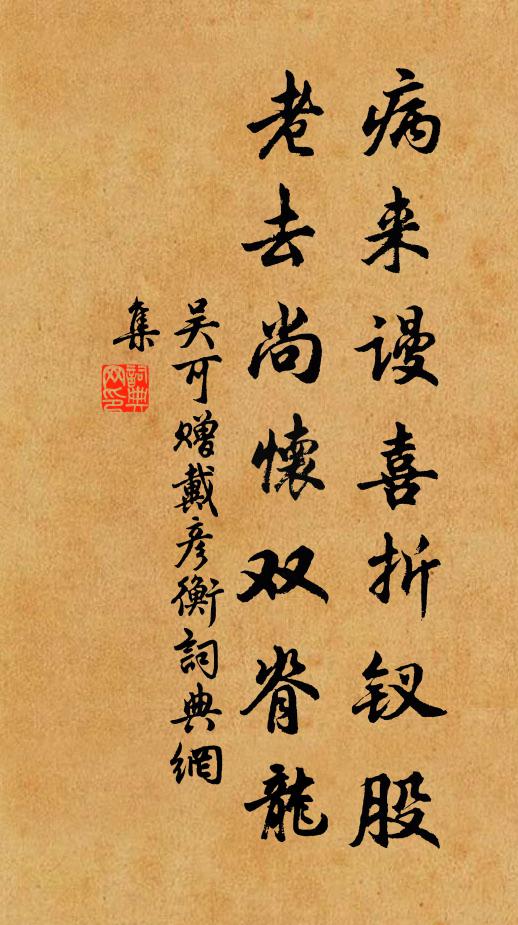 病来谩喜折钗股
老去尚懷双脊龍
吴可赠戴彦衡詞典網
集
詞典
网印